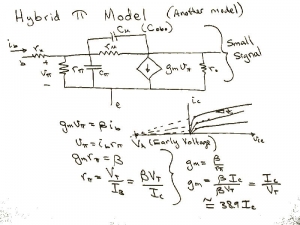 Hybrid π Model (Another model)
Cμ (Cobo)
Small
Signal
ib
b
rx
rμ
+
vπ
-
rπ
Cπ
gm vπ
ro
e
ic
VA (Early Voltage)
vce
gm vπ = β ib
vπ = ib rπ
gm rπ = β
rπ = VT / IB = β VT / IC
gm = β / rπ
gm = β IC / β VT = IC / VT
≅ 38.9 IC